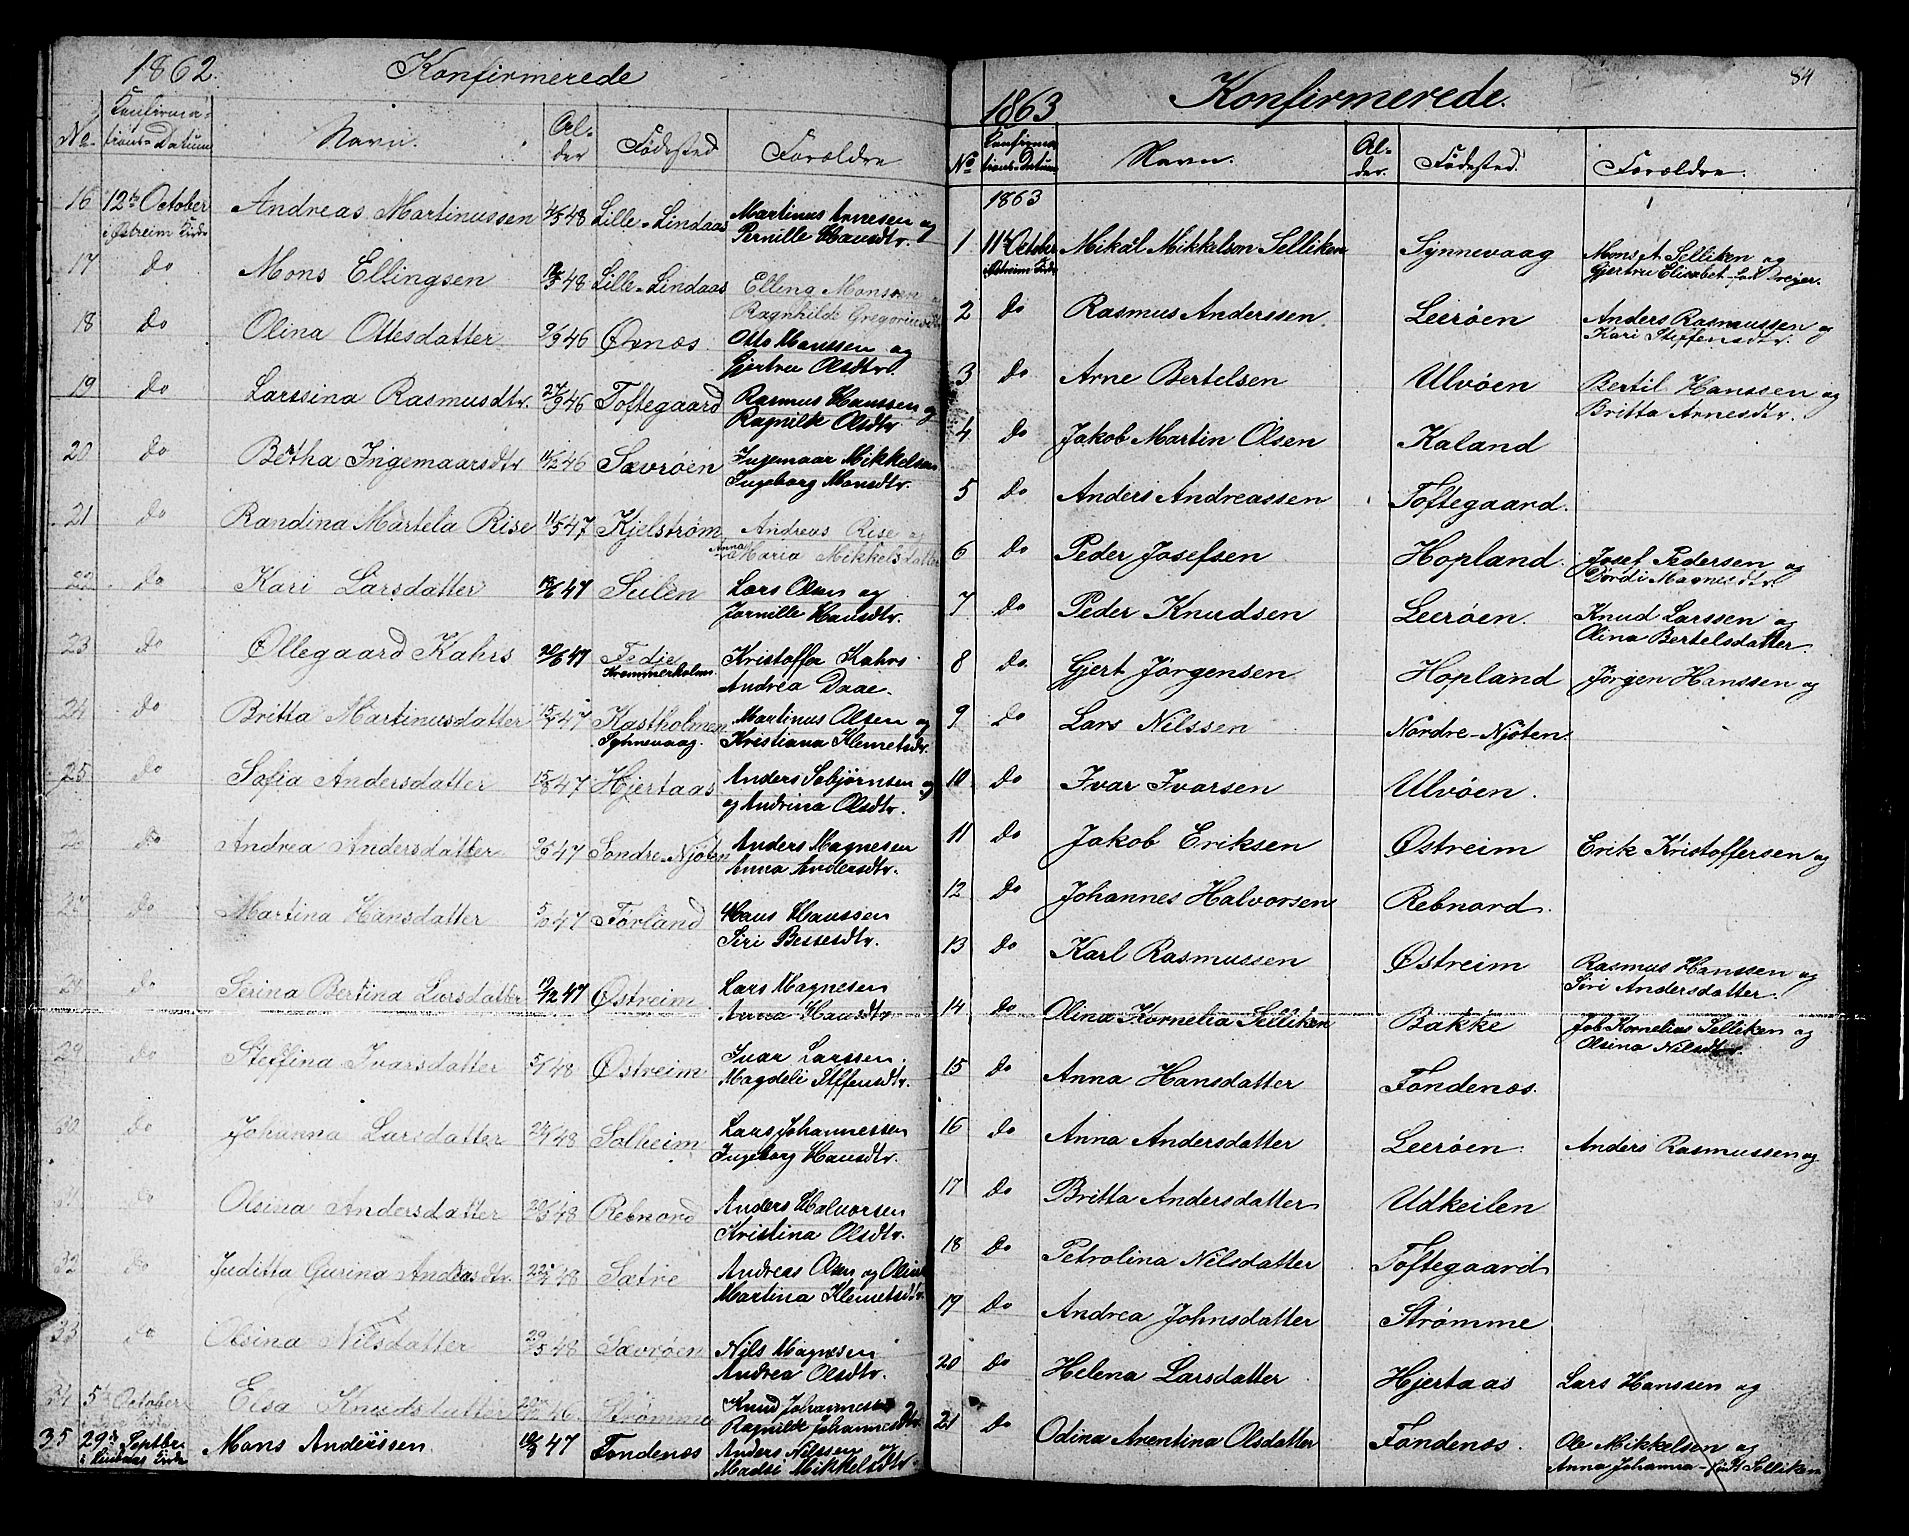 1862. Konfirmerede
No. Konfirma-tions-Datum Navn. Al-der Fødested Forældre
16 12te October i Østreim Kirke Andreas Martinussen 48 Lille-Lindaas Martinus Arnesen og
Pernille Hansdtr.
17 do Mons Ellingsen 48 Lille-Lindaas Elling Monsen og
Ragnhilde Gregoriusdtr
18 do Olina Ottesdatter 9/9 46 Øvnæs Otto Hanssen og
Gjertru Olsdtr.
19 do Larssina Rasmusdtr. 24/9 46 Toftegaard Rasmus Hanssen og
Ragnilde Olsdtr
20 do Bertha Ingemaarsdtr 11/12 46 Sævrøen Ingemaar Mikkelsen
Ingeborg Monsdtr.
21 do Randina Martela Rise 11/5 47 Kjelstrøm Andreas Rise og
Anna Maria Mikkelsdatter
22 do Kari Larsdatter 47 Sulen Lars Olsen og
Jornille Hansdtr.
23 do Øllegaard Kahrs 20/6 47 Fedje Kræmmerholm. Kristoffer Kahrs
Andrea Daae.
24 do Britta Martinusdatter 47 Kastholmen Synnevaag. Martinus Olsen og
Kristiana Klemetsdtr.
25 do Sofia Andersdatter 15/8 47 Hjertaas Anders Esbjørnsen og
og Andrina Olsdtr.
26 do Andrea Andersdatter 2/9 47 Søndre-Njøten Anders Magnesen
Anna Andersdtr.
27 do Martina Hansdatter 47 Førland Hans Hanssen
Siri Bessesdtr.
28 do Serina Bertina Larsdatter 47 Østreim Lars Magnesen
Anna Hansdtr
29 do Steffina Ivarsdatter 5/1 48 Østreim Ivar Larssen.
Magdeli Steffensdtr.
30 do Johanna Larsdatter 48 Solheim Lars Johannessen
Ingeborg Hansdtr.
31 do Olsina Andersdatter 48 Rebnord Anders Halvorsen
Kristina Olsdtr.
32 do Juditta Gurina Andreasdtr. 48 Sætre Andreas Olsen og Olina
Martina Klemetsdtr.
33 do Olsina Nilsdatter 29/5 48 Sævrøen Nils Magnesen
Andrea Olsdtr.
34 5te October Elsa Knudsdatter 46 Strømme Knud Johannessen
Ragnilde Johannesdtr.
35 29de Septbr. i Lindaas Kirke Mons Anderssen 47 Fondenæs Anders Nilssen og
Madsi Mikkelsdtr.
84
1863 Konfirmerede.
No Konfirma-tions-Datum Navn. Al-der. Fødested. Forældre.
1863
1 11te October i Østreim Kirke Mikal Mikkelson Selliken Synnevaag Mons A Selliken og
Gjertru Elisabet født Dreyer.
2 do Rasmus Anderssen. Leerøen Anders Rasmussen og
Kari Steffensdtr.
3 do Arne Bertelsen Ulvøen Bertil Hanssen og
Britta Arnesdtr.
4 do Jakob Martin Olsen Kaland
5 do Anders Andreassen Toftegaard.
6 do Peder Josefsen Hopland. Josef Pedersen og
Dordi Magnusdtr.
7 do Peder Knudsen Leerøen. Knud Larssen og
Olina Bertelsdatter
8 do Gjert Jørgensen Hopland Jørgen Hanssen og
9 do Lars Nilssen Nordre-Njøten
10 do Ivar Ivarsen Ulvøen.
11 do Jakob Eriksen Østreim Erik Kristoffersen og
12 do Johannes Halvorsen Rebnord.
13 do Karl Rasmussen Østreim Rasmus Hanssen og
Siri Andersdatter.
14 do Olina Kornelia Selliken Bakke Job Kornelius Selliken og
Olsina Nilsdtr.
15 do Anna Hansdatter Fondenæs.
16 do Anna Andersdatter Leerøen. Anders Rasmussen og
17 do Britta Andersdatter Udkeilen
18 do Petrolina Nilsdatter Toftegaard
19 do Andrea Johnsdatter Strømme
20 do Helena Larsdatter Hjertaas Lars Hanssen og
21 do Odina Arentina Olsdatter Fondenæs. Ole Mikkelsen og
Anna Johanna - født Selliken